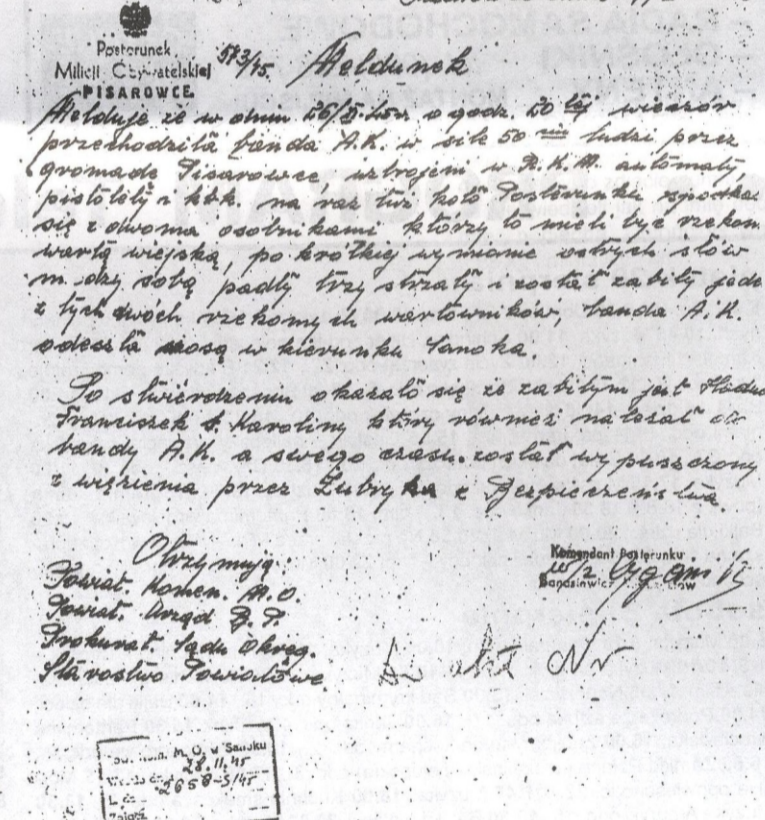 Posterunek
Milicji Obywatelskiej
PISAROWCE
573/45. Meldunek
Melduje że w dniu 26/ 45r o godz. 20 tej wieczór
przechodziła banda A.K. w sile 50 ludzi przez
gromadę Pisarowce, uzbrojeni w R.K.M. automaty,
pistolety i kbk. na raz tuż koło Posterunku
się z dwoma osobnikami którzy to mieli być
wartą wiejską, po krótkiej wymianie ostrych słów
między sobą padły trzy strzały i został zabity
z tych dwóch rzekomych wartowników, banda A.K.
odeszła szosą w kierunku Sanoka.
Po stwierdzeniu okazało się że zabitym jest
Franciszek s. Karoliny który również należał do
bandy A.K. a swego czasu został wypuszczony
z więzienia przez Żubryka z Bezpieczeństwa.
Otrzymują:
Powiat. Komen. M.O.
Powiat. Urząd B.P.
Prokurat. Sądu Okręg.
Starostwo Powiatowe
Komendant Posterunku
w/z
M. O. w Sanoku
28.11.45
2658-5/45